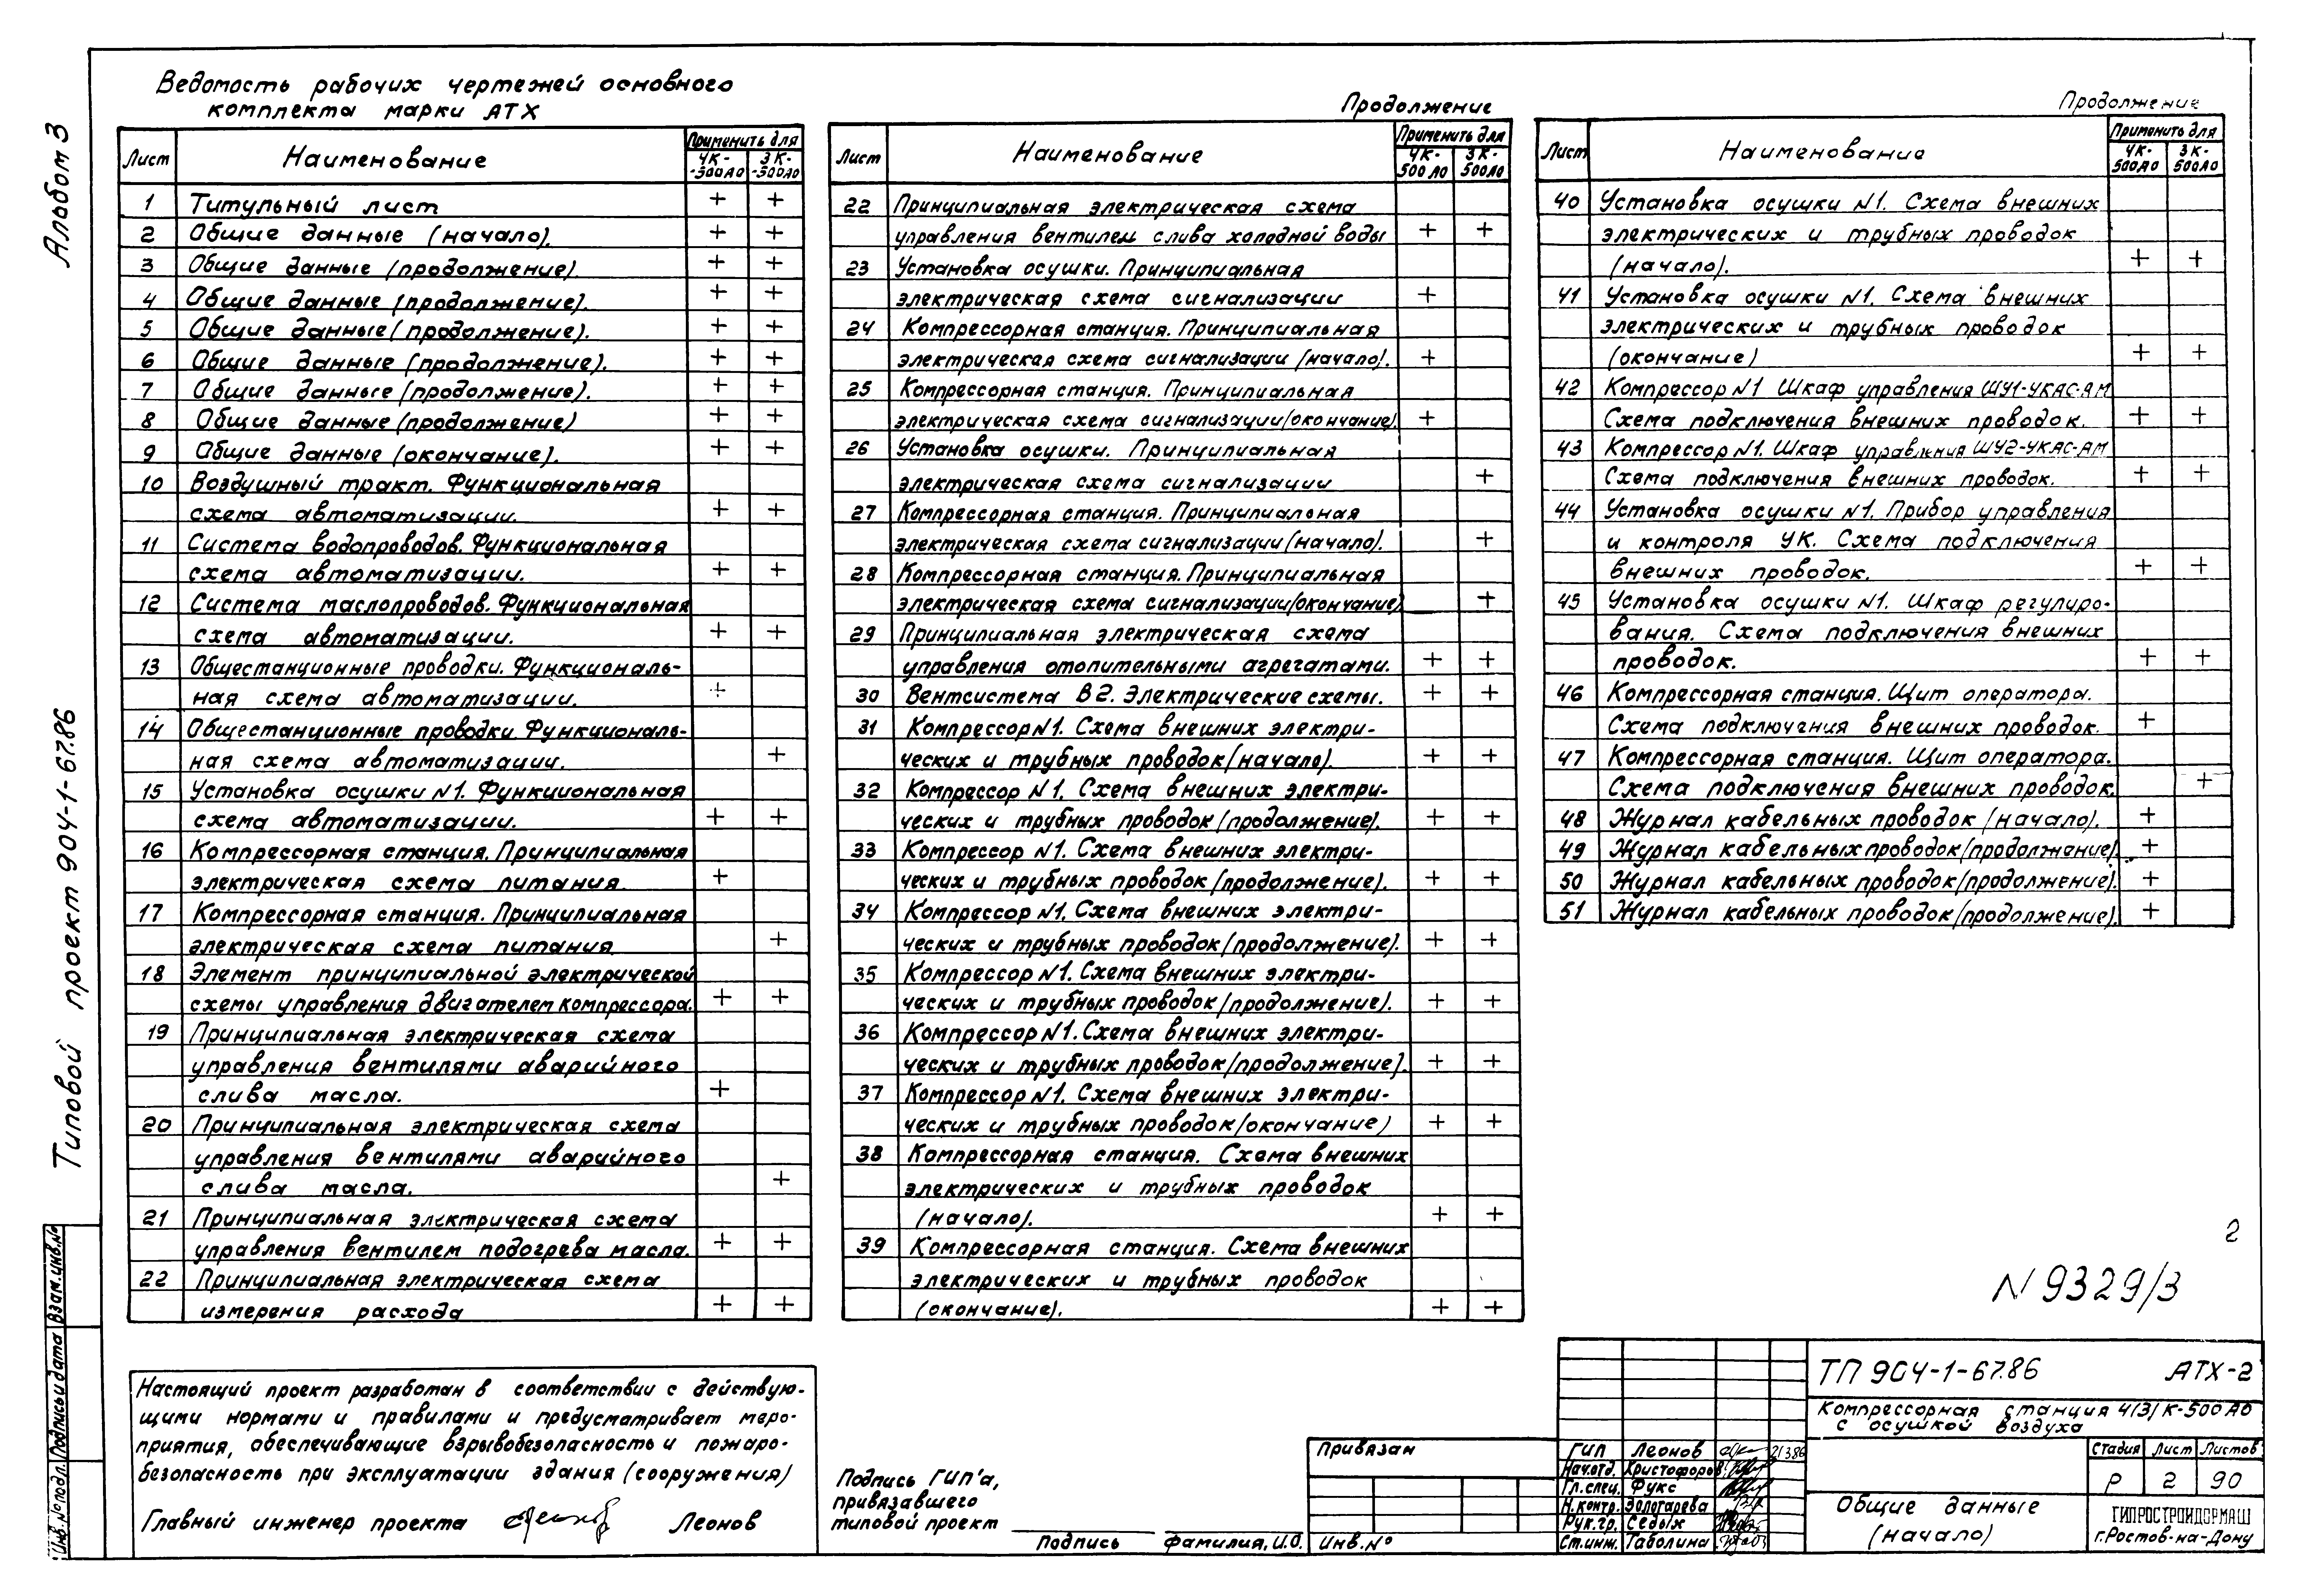 Альбом 3
Типовой проект 904-1-67.86
Ведомость рабочих чертежей основного
комплекта марки АТХ
Лист Наименование Применить для
4К-500АО 3К-500АО
1 Титульный лист + +
2 Общие данные (начало). + +
3 Общие данные (продолжение). + +
4 Общие данные (продолжение). + +
5 Общие данные (продолжение). + +
6 Общие данные (продолжение). + +
7 Общие данные (продолжение). + +
8 Общие данные (продолжение) + +
9 Общие данные (окончание). + +
10 Воздушный тракт. Функциональная
схема автоматизации. + +
11 Система водопроводов. Функциональная
схема автоматизации. + +
12 Система маслопроводов. Функциональная
схема автоматизации. + +
13 Общестанционные проводки. Функциональ-
ная схема автоматизации. +
14 Общестанционные проводки. Функциональ-
ная схема автоматизации. +
15 Установка осушки N1. Функциональная
схема автоматизации. + +
16 Компрессорная станция. Принципиальная
электрическая схема питания. +
17 Компрессорная станция. Принципиальная
электрическая схема питания +
18 Элемент принципиальной электрической
схемы управления двигателем компрессора. + +
19 Принципиальная электрическая схема
управления вентилями аварийного
слива масла. +
20 Принципиальная электрическая схема
управления вентилями аварийного
слива масла. +
21 Принципиальная электрическая схема
управления вентилем подогрева масла. + +
22 Принципиальная электрическая схема
измерения расхода + +
Продолжение
Лист Наименование Применить для
4К-500АО 3К-500АО
22 Принципиальная электрическая схема
управления вентилем слива холодной воды + +
23 Установка осушки. Принципиальная
электрическая схема сигнализации +
24 Компрессорная станция. Принципиальная
электрическая схема сигнализации (начало). +
25 Компрессорная станция. Принципиальная
электрическая схема сигнализации (окончание). +
26 Установка осушки. Принципиальная
электрическая схема сигнализации +
27 Компрессорная станция. Принципиальная
электрическая схема сигнализации (начало). +
28 Компрессорная станция. Принципиальная
электрическая схема сигнализации (окончание) +
29 Принципиальная электрическая схема
управления отопительными агрегатами. + +
30 Вентсистема В2. Электрические схемы. + +
31 Компрессор N1. Схема внешних электри-
ческих и трубных проводок (начало). + +
32 Компрессор N1. Схема внешних электри-
ческих и трубных проводок (продолжение). + +
33 Компрессор N1. Схема внешних электри-
ческих и трубных проводок (продолжение). + +
34 Компрессор N1. Схема внешних электри-
ческих и трубных проводок (продолжение). + +
35 Компрессор N1. Схема внешних электри-
ческих и трубных проводок (продолжение). + +
36 Компрессор N1. Схема внешних электри-
ческих и трубных проводок (продолжение). + +
37 Компрессор N1. Схема внешних электри-
ческих и трубных проводок (окончание) + +
38 Компрессорная станция. Схема внешних
электрических и трубных проводок
(начало). + +
39 Компрессорная станция. Схема внешних
электрических и трубных проводок
(окончание). + +
Продолжение
Лист Наименование Применить для
4К-500АО 3К-500АО
40 Установка осушки N1. Схема внешних
электрических и трубных проводок
(начало). + +
41 Установка осушки N1. Схема внешних
электрических и трубных проводок
(окончание) + +
42 Компрессор N1 Шкаф управления ШУ1-УКАС-АМ
Схема подключения внешних проводок. + +
43 Компрессор N1. Шкаф управления ШУ2-УКАС-АМ
Схема подключения внешних проводок. + +
44 Установка осушки N1. Прибор управления
и контроля УК. Схема подключения
внешних проводок. + +
45 Установка осушки N1. Шкаф регулиро-
вания. Схема подключения внешних
проводок. + +
46 Компрессорная станция. Щит оператора.
Схема подключения внешних проводок. +
47 Компрессорная станция. Щит оператора.
Схема подключения внешних проводок. +
48 Журнал кабельных проводок (начало). +
49 Журнал кабельных проводок (продолжение). +
50 Журнал кабельных проводок (продолжение). +
51 Журнал кабельных проводок (продолжение). +
2
N 9329/3
Настоящий проект разработан в соответствии с действую-
щими нормами и правилами и предусматривает меро-
приятия, обеспечивающие взрывобезопасность и пожаро-
безопасность при эксплуатации здания (сооружения)
Главный инженер проекта Леонов
Подпись ГИП'а,
привязавшего
типовой проект
Подпись Фамилия, И.О.
Привязан
Инв. №
ГИП Леонов 21386
Нач.отд. Христофоров
Гл.спец. Фукс
Н.контр. Золотарева
Рук.гр. Седых
Ст.инж. Таболина
ТП 904-1-67.86 АТХ-2
Компрессорная станция 4(3)К-500АО
с осушкой воздуха
Стадия Лист Листов
Р 2 90
Общие данные
(начало)
ГИПРОСТРОЙДОРМАШ
г.Ростов-на-Дону
Инв. № подл. Подпись и дата Взам.инв.№